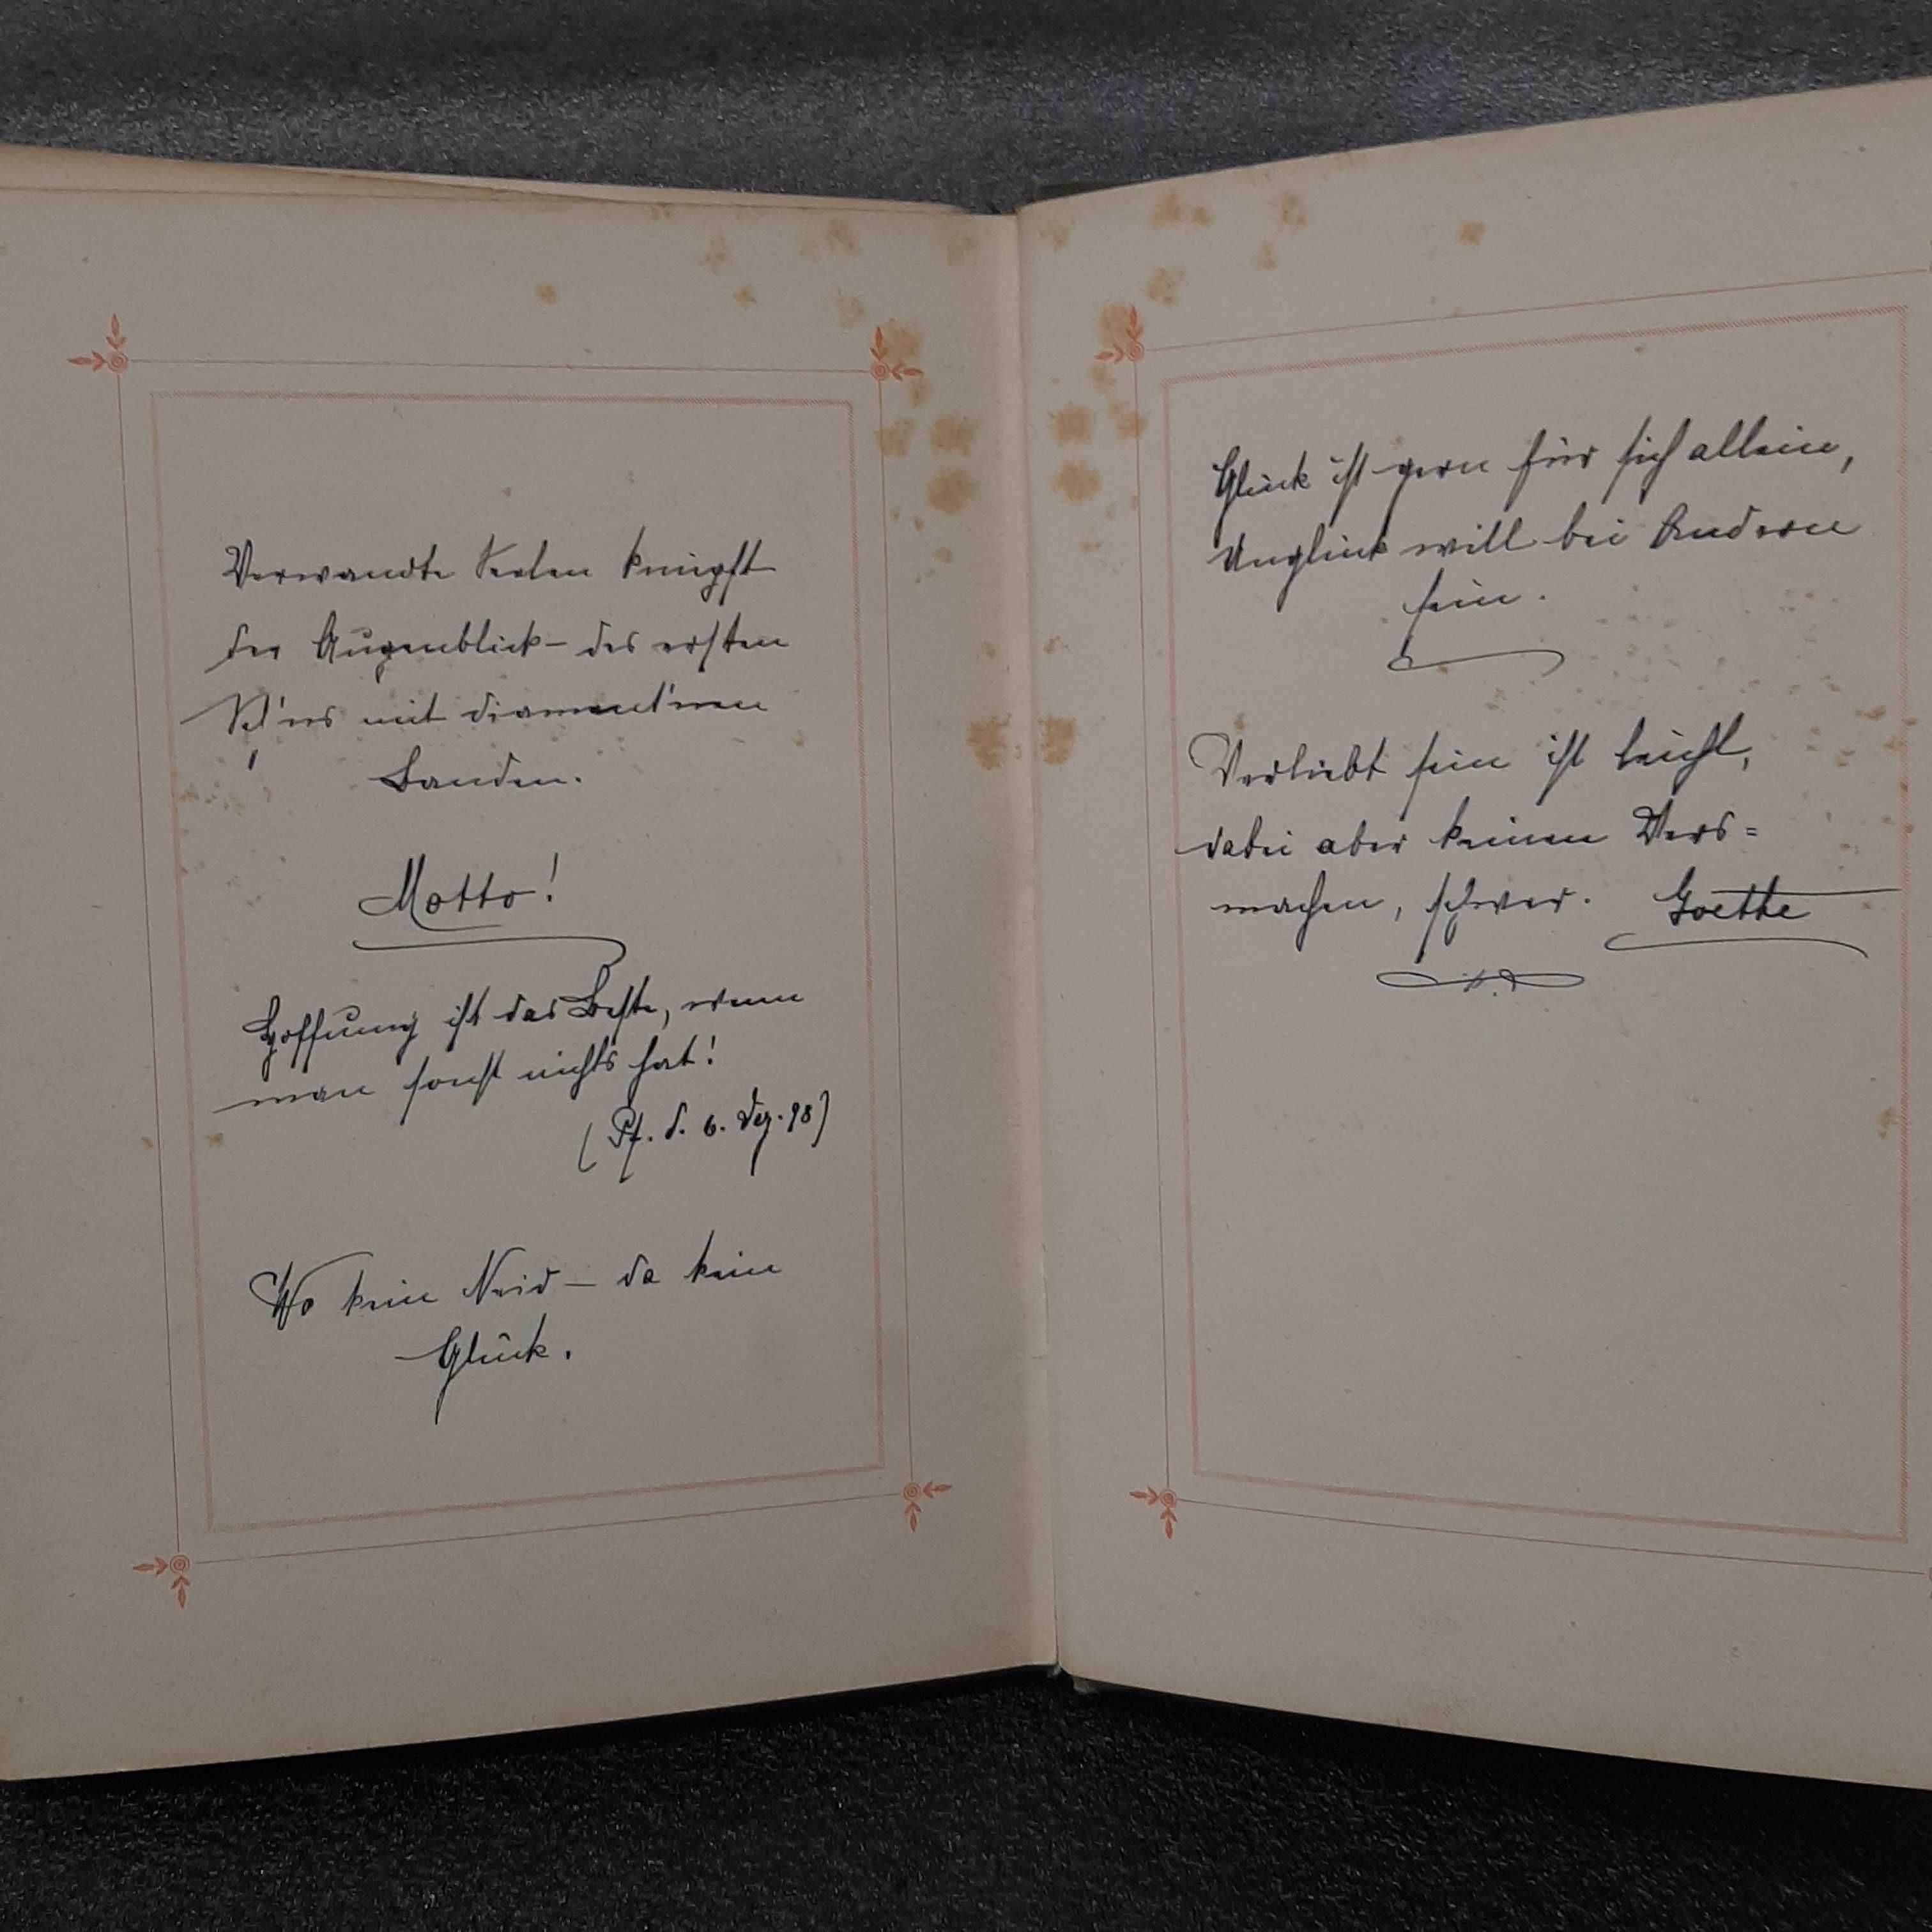 Verwandte Seelen knüpft
der Augenblick – des ersten
Seh'ns mit diamant'nen
Banden.
Motto!
Hoffnung ist das Beste, wenn
man sonst nichts hat!
(Pf. d. 6. Dez. 98)
Wo kein Neid – da kein
Glück.
Glück ist gern für sich allein,
Unglück will bei Andern
sein.
Verliebt sein ist leicht,
dabei aber keinen Vers=
machen, schwer. Goethe